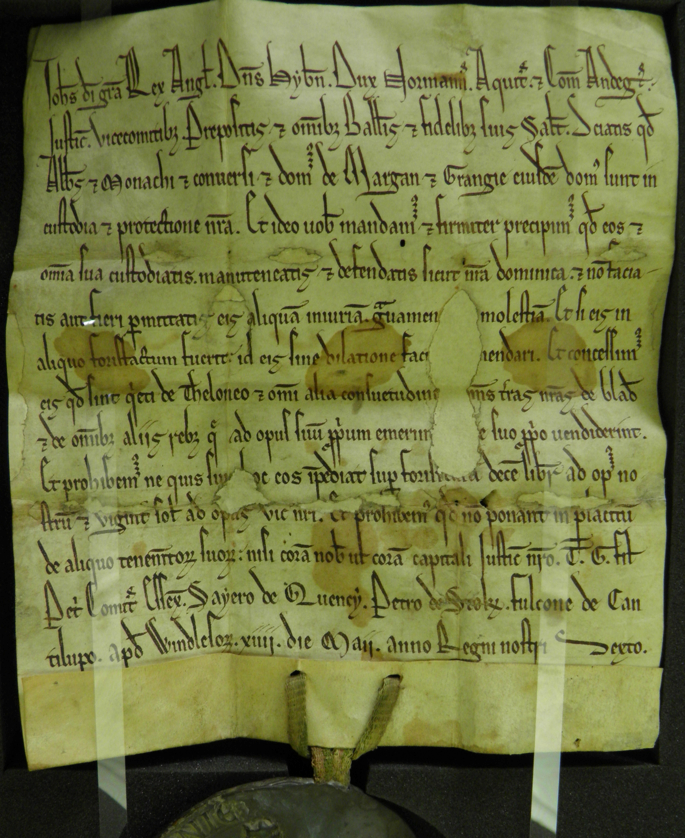 Joh's di gra Rex Angl'. Dns Hyb'n. Dux Normann'. Aquit'. ⁊ Com Andeg'.
Justic'. vicecomitib; Prepositis ⁊ omib; Ball'is ⁊ fidelib; suis Sal't. Sciatis qd
Abb's ⁊ Monachi ⁊ conversi ⁊ dom' de Margan ⁊ Grangie eiusde dom' sunt in
custodia ⁊ protectione nra. Et ideo vob' mandam' ⁊ firmiter precipim' qd eos ⁊
omia sua custodiatis. manuteneatis ⁊ defendatis sicut nra dominica. ⁊ no facia-
tis aut fieri pmittatis eis aliqua iniuria. gvamen molestia. Et si eis in
aliquo forisfactum fuerit: id eis sine dilatione faci endari. Et concessim'
eis qd sint q'eti de Theloneo ⁊ omi alia consuetudine ms tras nras de blad'
⁊ de omib; aliis reb; q' ad opus suu pp'um emerin e suo pp'o vendiderint.
Et prohibem' ne quis eos ipediat sup dece libr' ad op' no
stru ⁊ viginti sol' ad opus vic nri. Et prohibem' qd no ponant' in placitu
de aliquo tenentoꝝ suoꝝ: nisi cora nob' vl' cora capitali Justic' nro. T. G. fil'
Pet'. Comit' Essex. Sayero de Quency. Petro de Stok'. fulcone de Can
tilupo. apd' Windlesoꝝ. xiiii. die Maii. anno Regni nostri Sexto.